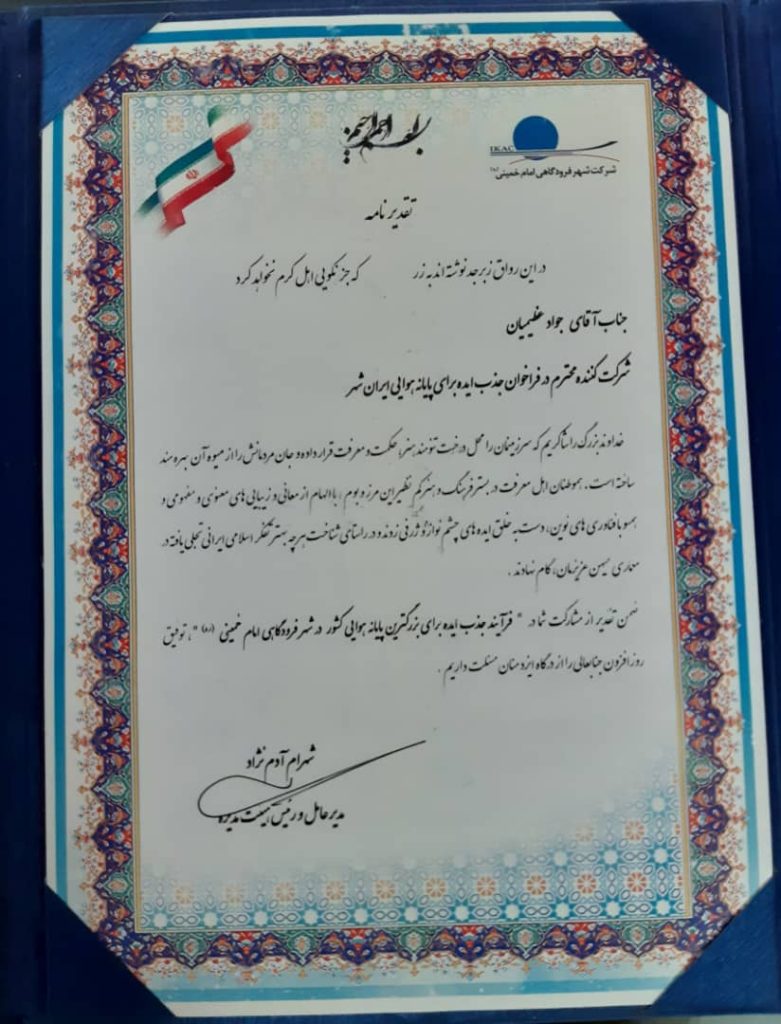 بسم الله الرحمن الرحیم
IKAC
شرکت شهر فرودگاهی امام خمینی (ره)
تقدیر نامه
در این رواق زبرجد نوشته اند به زر که جز نکویی اهل کرم نخواهد کرد
جناب آقای جواد عظیمیان
شرکت کننده محترم در فراخوان جذب ایده برای پایانه هوایی ایران شهر
خداوند بزرگ را شاکریم که سرزمینمان را محل درخت تنومند هنر، حکمت و معرفت قرار داده و جان مردمانش را از میوه آن بهره مند
ساخته است. هموطنان اهل معرفت در بستر فرهنگ و هنر کم نظیر این مرز و بوم، با الهام از معانی و زیبایی های معنوی و مفهومی و
همسو با فناوری های نوین، دست به خلق ایده های چشم نواز و ژرفی زوند و در راستای شناخت هرچه بهتر تفکر اسلامی ایرانی تجلی یافته در
معماری میهن عزیزمان، گام نهادند.
ضمن تقدیر از مشارکت شما در " فرآیند جذب ایده برای بزرگترین پایانه هوایی کشور در شهر فرودگاهی امام خمینی (ره) "، توفیق
روز افزون جنابعالی را از درگاه ایزد منان مسئلت داریم.
شهرام آدم نژاد
مدیر عامل و رئیس هیئت مدیره